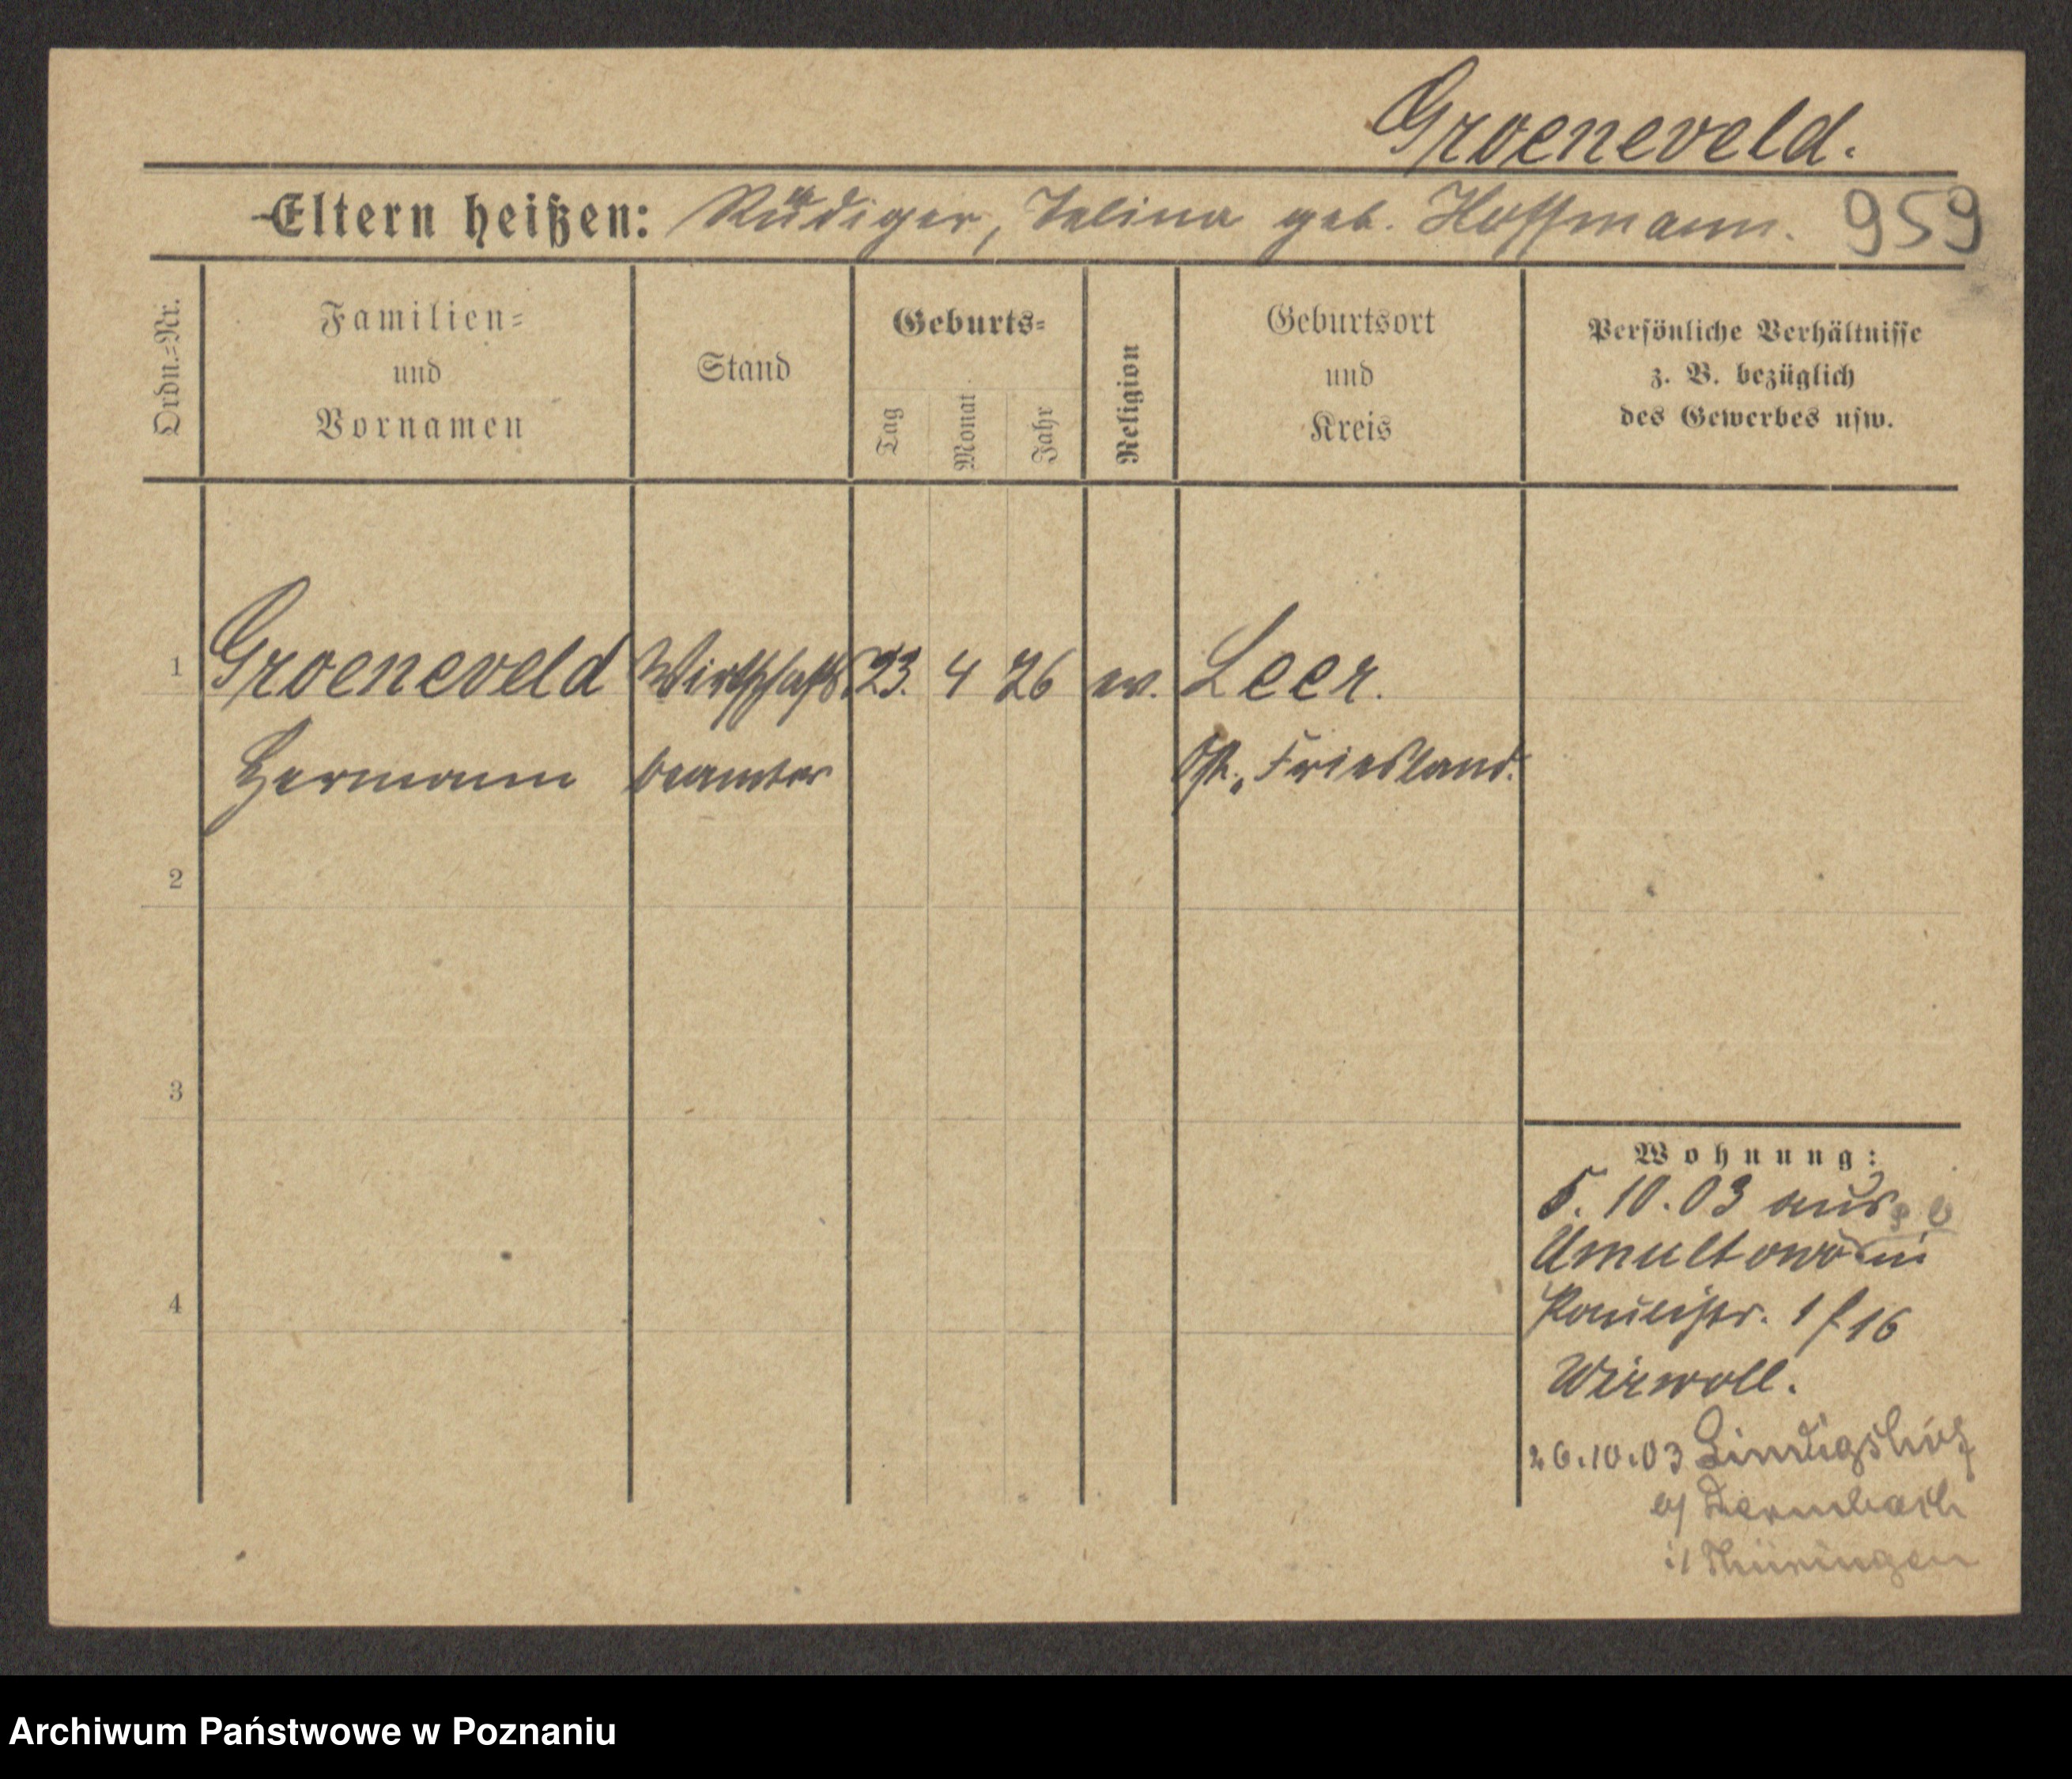 Groeneveld.
Eltern heißen: Rüdiger, Talina geb. Hoffmann. 959
Ordn.=Nr.
Familien=
und
Vornamen
Stand
Geburts=
Tag
Monat
Jahr
Religion
Geburtsort
und
Kreis
Persönliche Verhältnisse
z. B. bezüglich
des Gewerbes usw.
1 Groeneveld Wirtschafts 23. 4 76 ev. Leer.
Hermann beamter Ost., Friesland.
2
3
4
Wohnung:
5. 10. 03 aus
Umultowo in
Paulistr. 1 f 16
Wirwoll.
26.10.03 Lindigshof
b/ Dermbach
i/ Thüringen
Archiwum Państwowe w Poznaniu